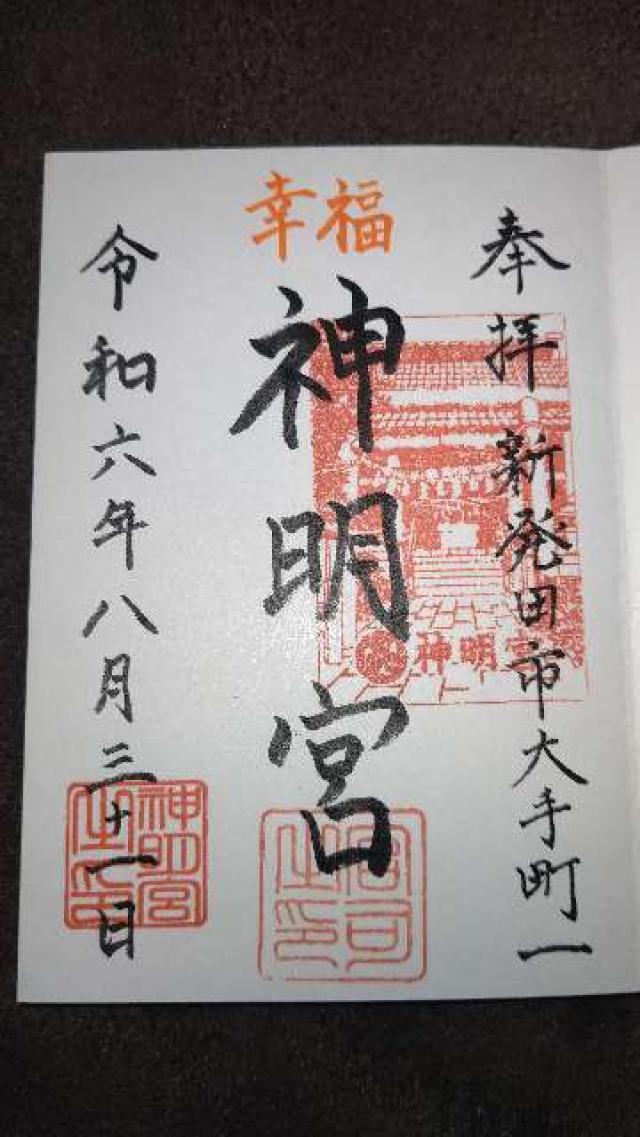 奉拝 新発田市大手町一
幸福
神明宮
神明宮
宮司之印
令和六年八月三十一日
神明宮之印